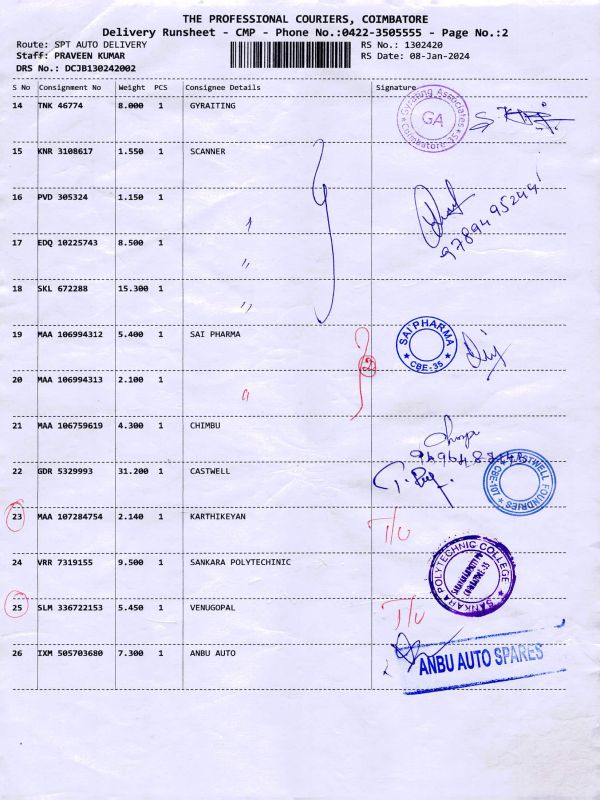 THE PROFESSIONAL COURIERS, COIMBATORE
Delivery Runsheet - CMP - Phone No.:0422-3505555 - Page No.:2
Route: SPT AUTO DELIVERY
RS No.: 1302420
Staff: PRAVEEN KUMAR
RS Date: 08-Jan-2024
DRS No.: DCJB130242002
S No Consignment No Weight PCS Consignee Details Signature
14 TNK 46774 8.000 1 GYRAITING
Gyrating Associates
GA
Coimbatore
15 KNR 3108617 1.550 1 SCANNER
16 PVD 305324 1.150 1 〃
17 EDQ 10225743 8.500 1 〃
18 SKL 672288 15.300 1 〃
19 MAA 106994312 5.400 1 SAI PHARMA
SAI PHARMA
★ CBE-35 ★
2
20 MAA 106994313 2.100 1 〃
21 MAA 106759619 4.300 1 CHIMBU
22 GDR 5329993 31.200 1 CASTWELL
CASTWELL FOUNDRIES
CBE-107
23 MAA 107284754 2.140 1 KARTHIKEYAN
T/U
24 VRR 7319155 9.500 1 SANKARA POLYTECHINIC
SANKARA POLYTECHNIC COLLEGE
25 SLM 336722153 5.450 1 VENUGOPAL
T/U
26 IXM 505703680 7.300 1 ANBU AUTO
ANBU AUTO SPARES